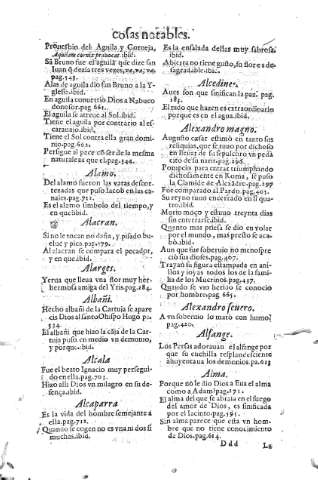 cosas notables.
Prouerbio del Aguila y Corneja,
Aquilam cornix prouocat. ibid.
Sã Bruno fue el aguila que dize san
Iuan q̃ dezia tres vezes, ve, va, ve
pag.543.
Alas de aguila dio san Bruno a la Y-
glesia.ibid.
En aguila conuertio Dios a Nabuco
donosor.pag.661.
El aguila se atreue al Sol.ibid.
Tiene el aguila por contrario al es-
carauajo.ibid.
Tiene el Sol contra ella gran domi-
nio.pag.662.
Persigue al pece cõ ser de la mesma
naturaleza que el.pag.
Alamo.
Del alamo fueron las varas descor-
tezadas que puso Iacob en las ca-
nales.pag.711.
Es el alamo simbolo del tiempo, y
en que.ibid.
Alacran.
Si no le tocan no daña, y pisado bu-
elue y pica.pag.179.
Al alacran se compara el pecador,
y en que.ibid.
Alarges.
Yerua que lleua vna flor muy her-
hermosa amiga del Yris.pag.284.
Albañi.
Hecho albañi de la Cartuja se apare
cis Dios al santo Obispo Hugo pa.
534
El albañi que hizo la casa de la Car-
tuja puso en medio vn demonio,
y porque.ibid.
Alcala
Fue el beato Ignacio muy persegui-
do en ella.pag.703.
Hizo alli Dios vn milagro en su de-
sença.ibid.
Alcaparra
Es la vida del hombre semejante a
ella.pag.712.
Quando se cogen no es vna ni si
muchas.ibid.
Es la ensalada dellas muy sabrosa
ibid.
Abierta no tiene gusto, su flor es de-
sagradable.ibid.
Alcediner.
Aues son que sinifican la paz. pag.
183.
El nido que hazen es extraordinario
porque es en el agua.ibid.
Alexandro magno.
Augusto cesar estimò en tanto sus
reliquias, que se tuuo por dichoso
en llenar de su sepulchro vn peda
cito de su nariz.pag.198.
Pompeyo para entrar triumphando
dichosamente en Roma, se puso
la Clamide de Alexandro.pag.199
Fue comparado al Pardo.pag.405.
Su reyno tuuo encerrado en si qua-
tro.ibid.
Murio moço y estuuo treynta dias
sin enterrarse.ibid.
Quanto mas priesa se dio en volar
por el mundo, mas presto se aca-
bò.ibid.
Aun que fue soberuio no menospre
ciò sus dioses.pag.407.
Trayan su figura estampada en ani-
llos y joyas todos los de la fami-
lia de los Mucrinos.pag.437.
Quando se vio herido se conocio
por hombre.pag.661.
Alexandro seuero.
A vn soberuio lo mato con humo
pag.420.
Alfange.
Los Persas adorauan el alfange por
que su cuchilla resplandesciente
ahuyentaua los demonios.pa.613
Alma.
Porque no le dio Dios a Eua el alma
como a Adam.pag.171.
El alma del que se abrasa en el fuego
del amor de Dios, es sinificada
por el Iacinto.pag.195.
Sin alma parece que esta vn hom-
bre que no tiene conocimiento
de Dios.pag.614.
Ddd
La